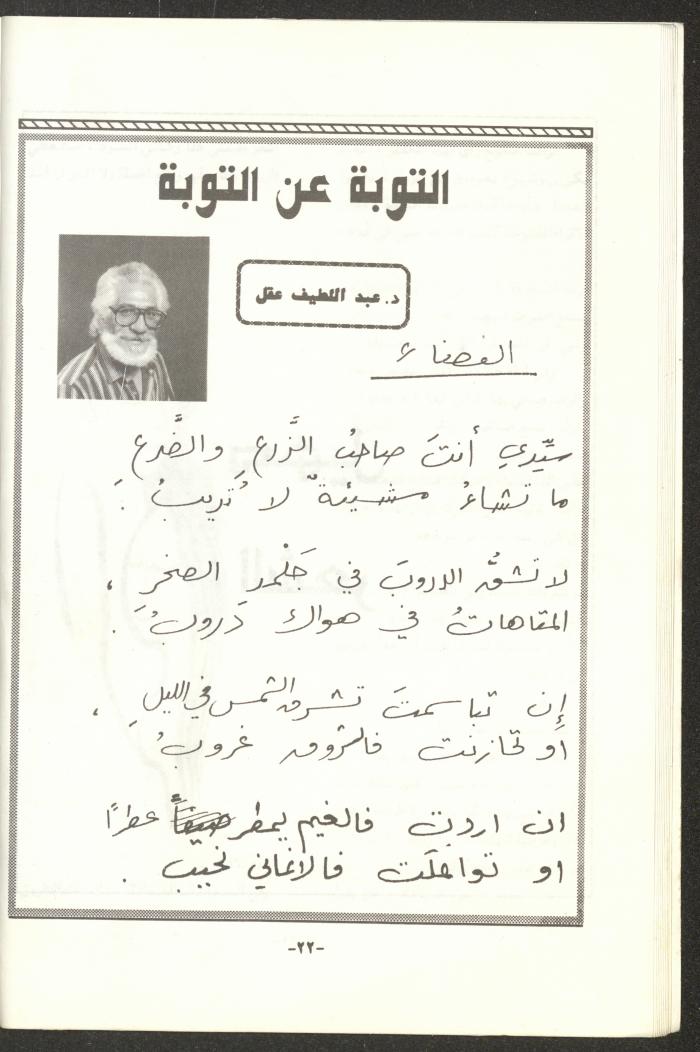 التوبة عن التوبة
د. عبد اللطيف عقل
الفضاء
سيّدي أنتَ صاحبُ الزَّرعِ والضَّرعِ
ما تشاءُ مشيئةٌ لا تُريبُ .
لا تشقُّ الدروبَ في جَلْمدِ الصخرِ ،
المتاهاتُ في هواكَ دَروبُ .
إِن تباسمتَ تشرق الشمس في الليلِ ،
او تحازنت فالشروق غروبُ
ان اردت فالغيم يمطر عطراً
او تواصلَت فالاغاني نحيب .
-٢٢-